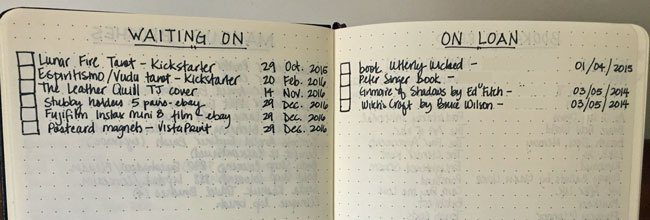 WAITING ON
Lunar Fire Tarot - Kickstarter 29 Oct. 2015
Espiritismo/Vudu tarot - Kickstarter 20 Feb. 2016
The Leather Quill TJ cover 14 Nov. 2016
Stubby holders 5 pairs - ebay 29 Dec. 2016
Fujifilm Instax mini 8 film - ebay 29 Dec. 2016
Postcard magnets - VistaPrint 29 Dec. 2016
ON LOAN
book Utterly Wicked - 01/04/2013
Peter Singer Book -
Grimoire of Shadows by Ed Fitch - 03/05/2014
Witch's Craft by Bruce Wilson - 03/05/2014